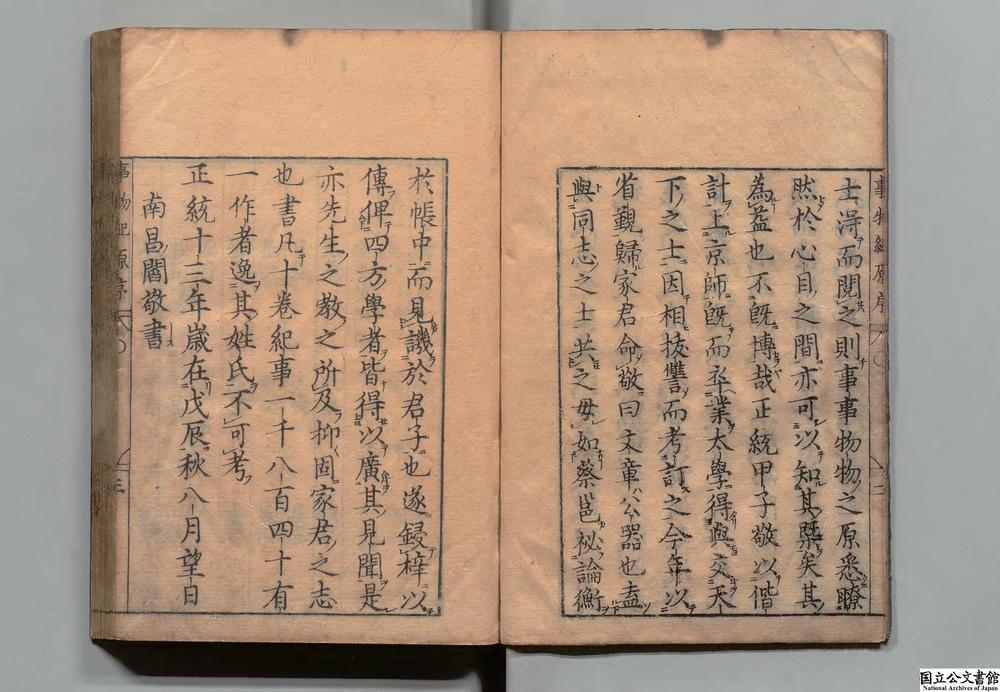 士淂而閱之則事事物物之原悉瞭
然於心目之間亦可以知其槩矣其
為益也不既博哉正統甲子敬以偕
計上京師既而卒業太學得與交天
下之士因相挍讐而考訂之今年以
省覲歸家君命敬曰文章公器也盍
與同志之士共之毋如蔡邕祕論衡
於帳中而見譏於君子也遂鋟梓以
傳俾四方學者皆得以廣其見聞是
亦先生之教之所及抑固家君之志
也書凡十卷紀事一千八百四十有
一作者逸其姓氏不可考
正統十三年歲在戊辰秋八月望日
南昌閻敬書
事物紀原序
二
事物紀原序
三
国立公文書館
National Archives of Japan